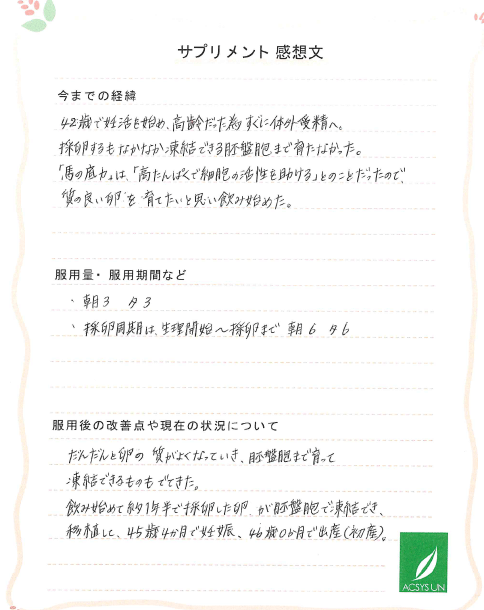 サプリメント 感想文
今までの経緯
42歳で妊活を始め、高齢だった為 すぐに体外受精へ。
採卵するも なかなか凍結できる胚盤胞まで育たなかった。
「馬の底力」は、「高たんぱくで細胞の活性を助ける」とのことだったので、
質の良い卵を 育てたいと思い飲み始めた。
服用量・服用期間など
・ 朝3 夕3
・ 採卵周期は、生理開始〜採卵まで 朝6 夕6
服用後の改善点や現在の状況について
だんだんと卵の 質がよくなっていき、胚盤胞まで育って
凍結できるものもでてきた。
飲み始めて約1年半で採卵した卵 が胚盤胞で凍結でき、
移植して、45歳4か月で妊娠、46歳0か月で出産(初産)。
ACSYSUN